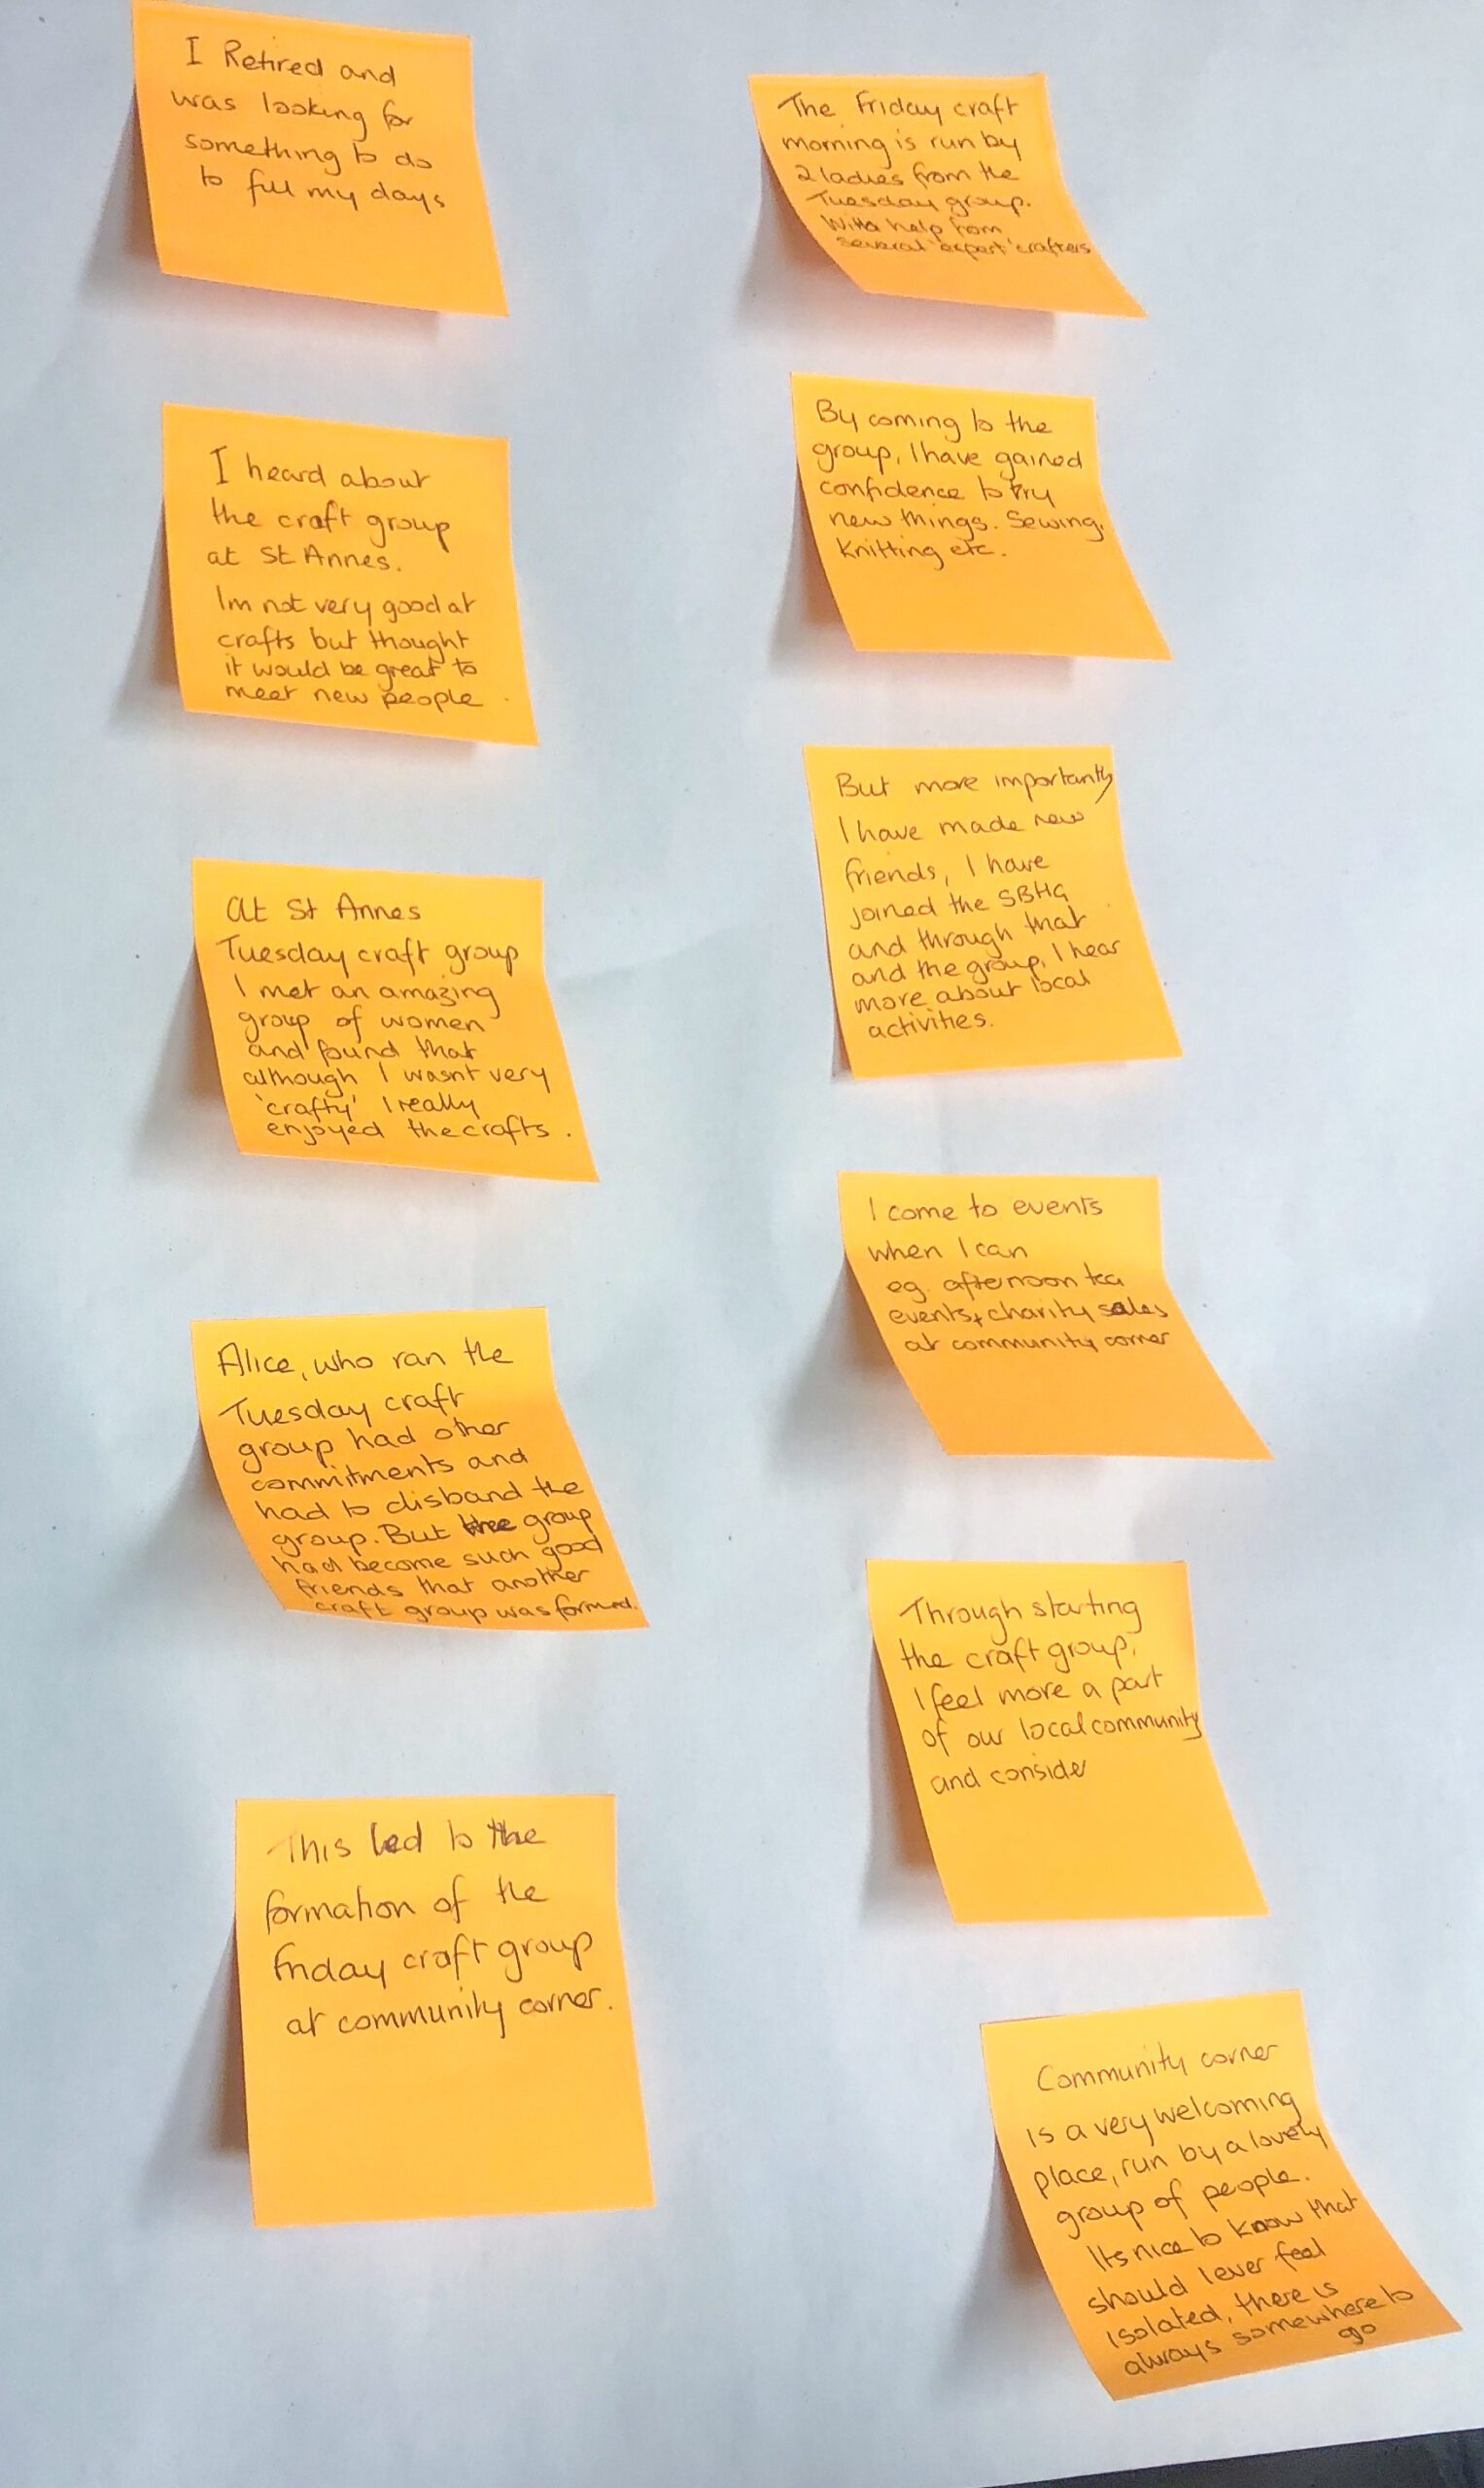 I Retired and
was looking for
something to do
to fill my days
I heard about
the craft group
at St Annes.
Im not very good at
crafts but thought
it would be great to
meet new people
At St Annes
Tuesday craft group
I met an amazing
group of women
and found that
although I wasnt very
'crafty' I really
enjoyed the crafts.
Alice, who ran the
Tuesday craft
group had other
commitments and
had to disband the
group. But the group
had become such good
friends that another
craft group was formed.
This led to the
formation of the
Friday craft group
at community corner.
The Friday craft
morning is run by
2 ladies from the
Tuesday group.
With help from
several 'expert' crafters
By coming to the
group, I have gained
confidence to try
new things. Sewing,
Knitting etc.
But more importantly
I have made new
friends, I have
joined the SBHG
and through that
and the group, I hear
more about local
activities.
I come to events
when I can
eg. afternoon tea
events + charity sales
at community corner
Through starting
the craft group,
I feel more a part
of our local community
and consider
Community corner
is a very welcoming
place, run by a lovely
group of people.
Its nice to know that
should I ever feel
isolated, there is
always somewhere to
go